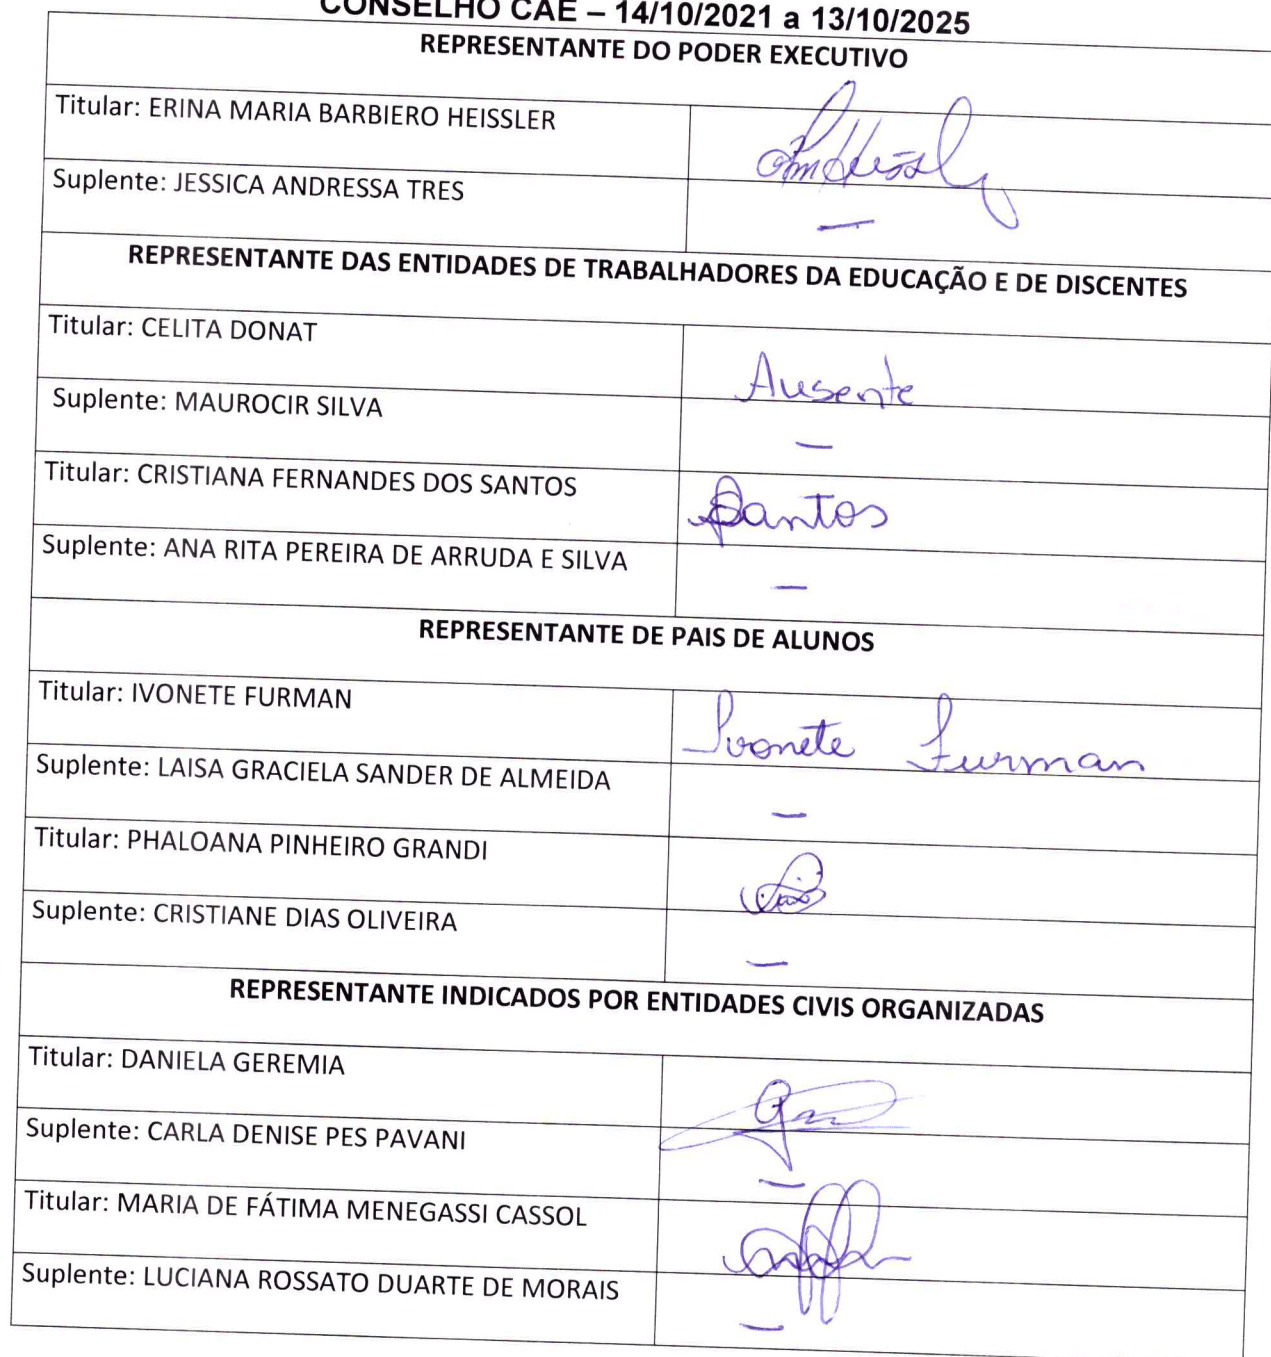 CONSELHO CAE – 14/10/2021 a 13/10/2025
REPRESENTANTE DO PODER EXECUTIVO
Titular: ERINA MARIA BARBIERO HEISSLER
Suplente: JESSICA ANDRESSA TRES
—
REPRESENTANTE DAS ENTIDADES DE TRABALHADORES DA EDUCAÇÃO E DE DISCENTES
Titular: CELITA DONAT
Ausente
Suplente: MAUROCIR SILVA
—
Titular: CRISTIANA FERNANDES DOS SANTOS
Santos
Suplente: ANA RITA PEREIRA DE ARRUDA E SILVA
—
REPRESENTANTE DE PAIS DE ALUNOS
Titular: IVONETE FURMAN
Ivonete Furman
Suplente: LAISA GRACIELA SANDER DE ALMEIDA
—
Titular: PHALOANA PINHEIRO GRANDI
Suplente: CRISTIANE DIAS OLIVEIRA
—
REPRESENTANTE INDICADOS POR ENTIDADES CIVIS ORGANIZADAS
Titular: DANIELA GEREMIA
Suplente: CARLA DENISE PES PAVANI
—
Titular: MARIA DE FÁTIMA MENEGASSI CASSOL
Suplente: LUCIANA ROSSATO DUARTE DE MORAIS
—